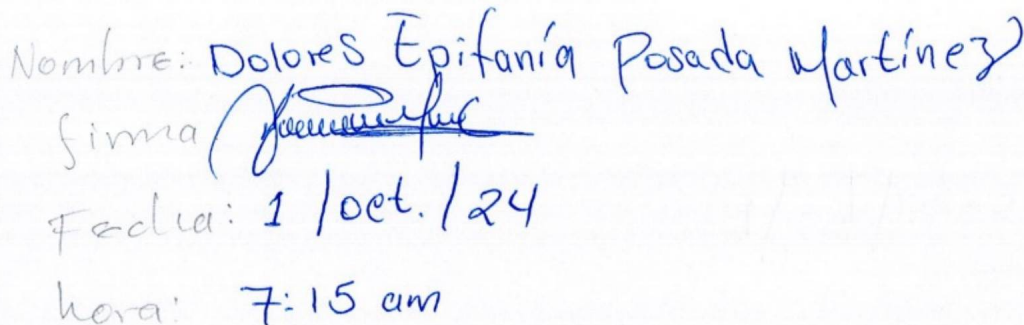 Nombre: Dolores Epifanía Posada Martínez
firma
Fecha: 1/oct./24
hora: 7:15 am